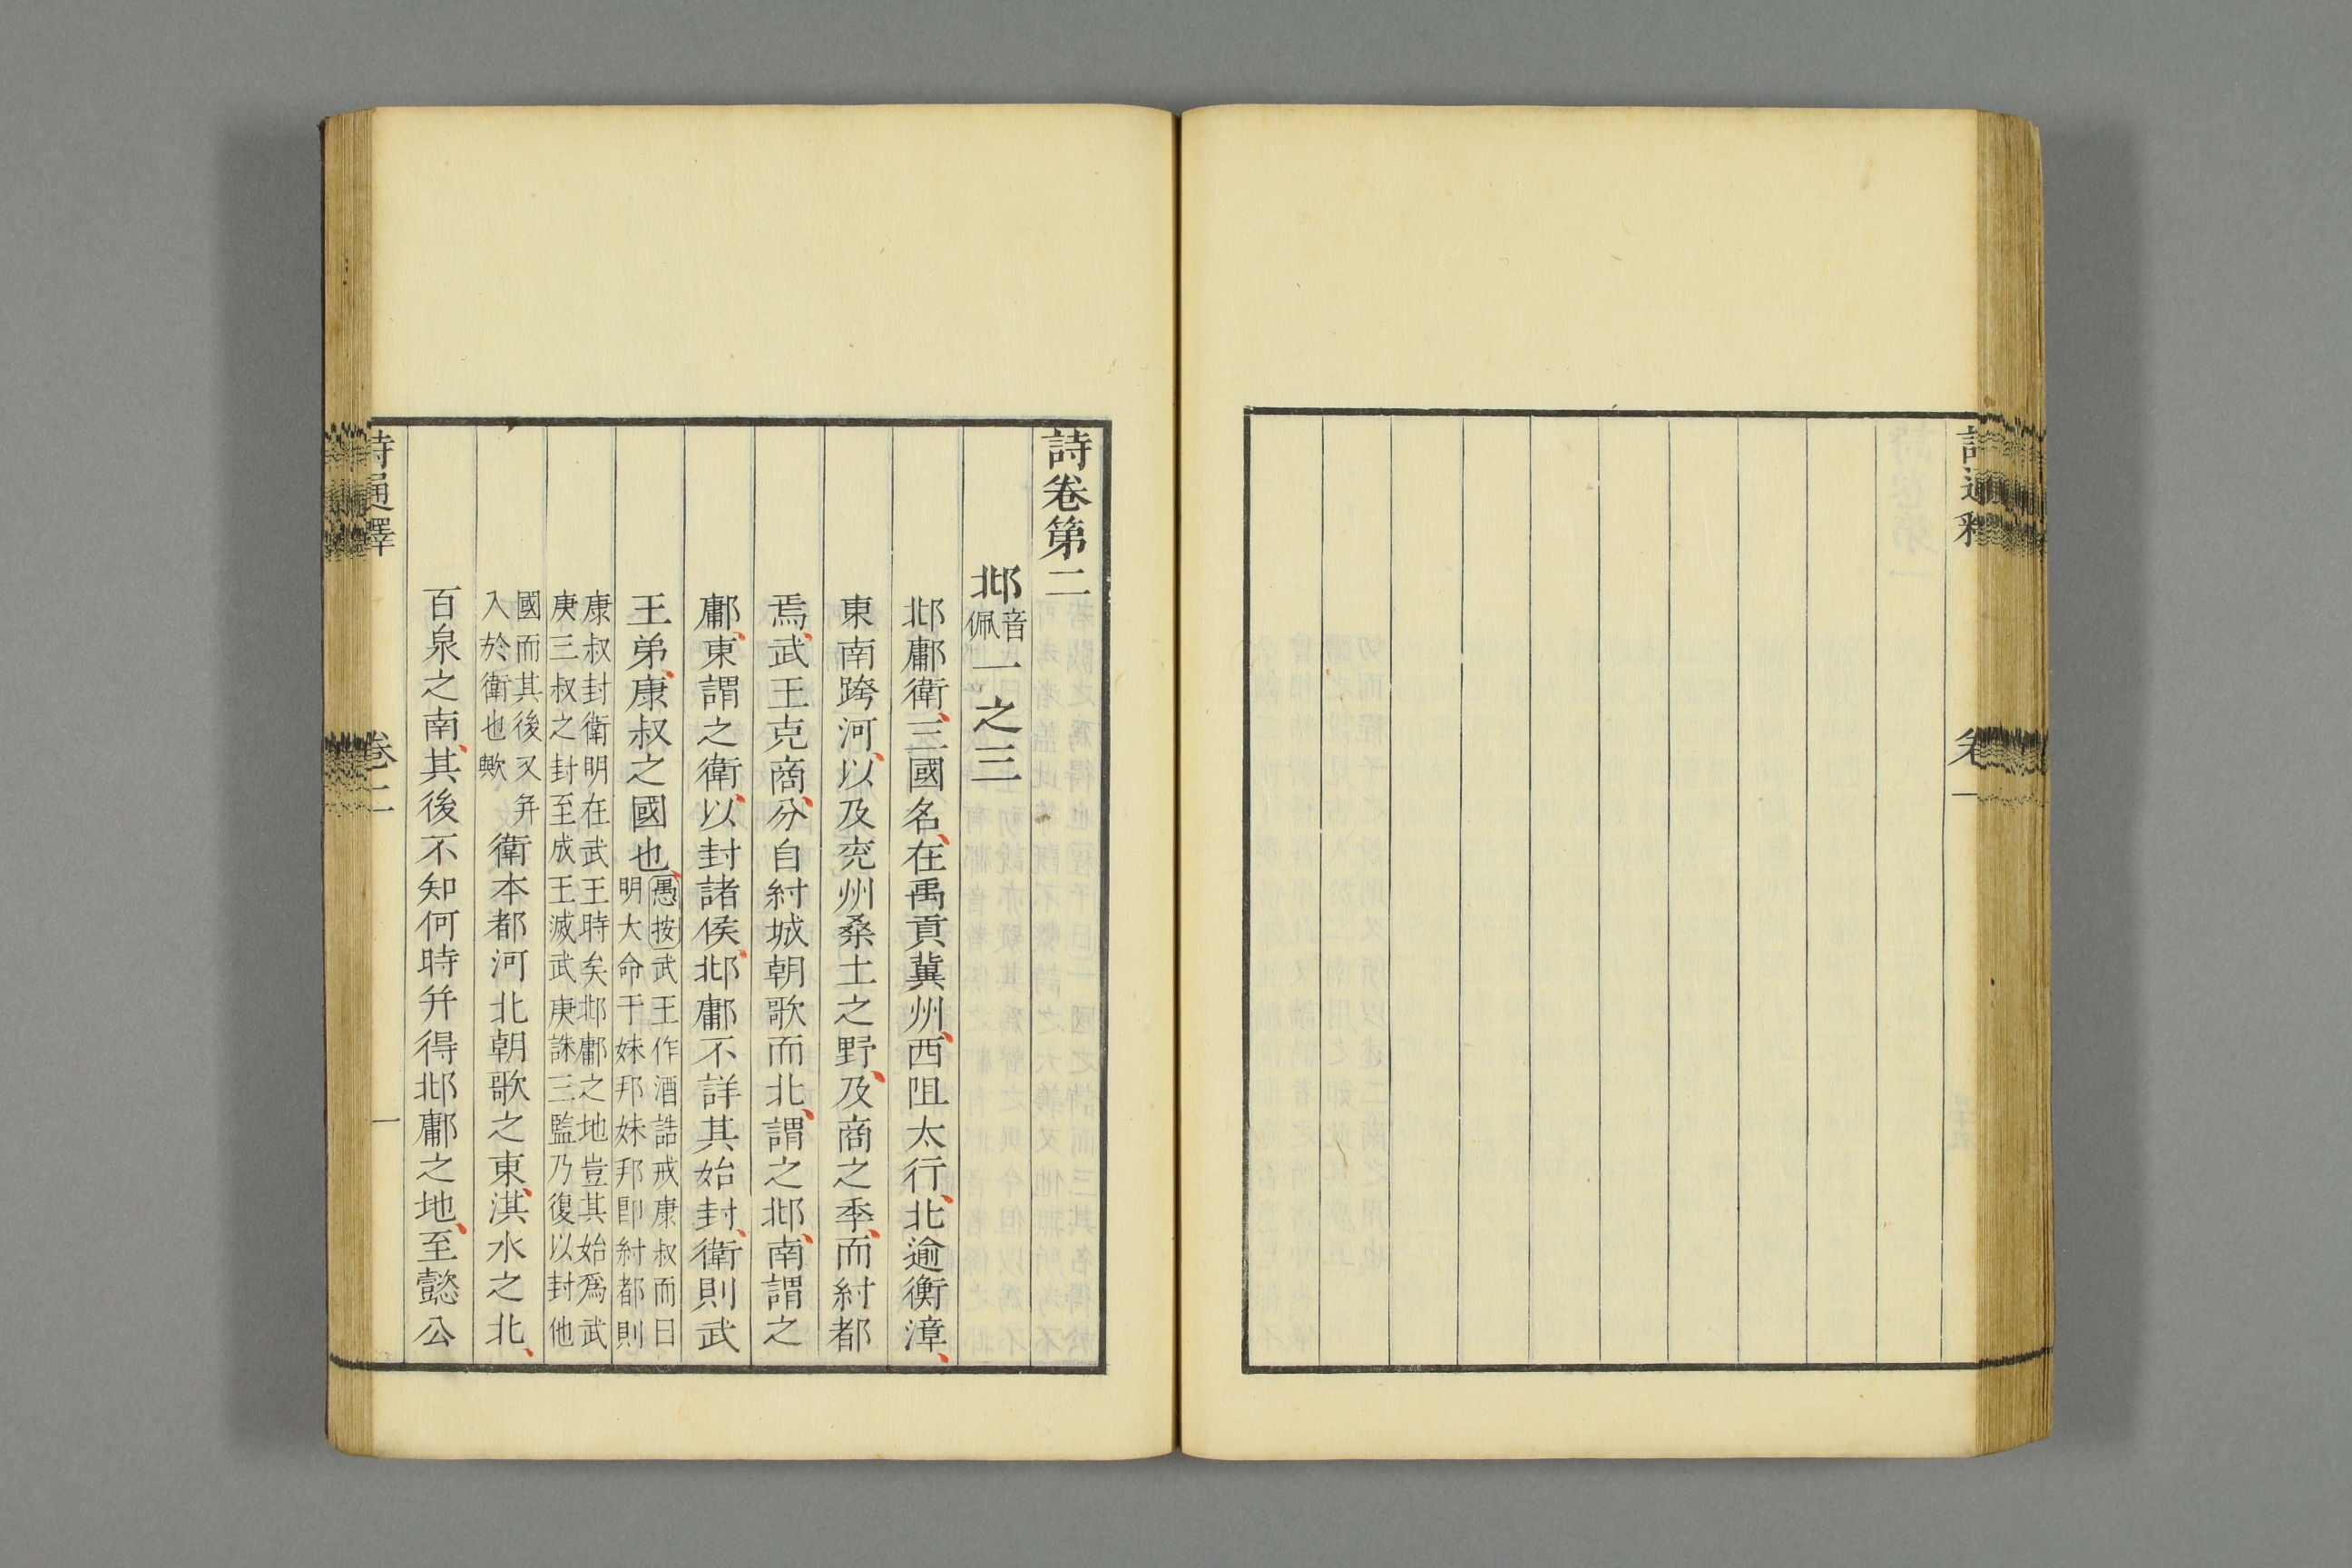 詩卷第二
邶音佩一之三
邶鄘衛三國名在禹貢冀州西阻太行北逾衡漳
東南跨河以及兖州桑土之野及商之季而紂都
焉武王克商分自紂城朝歌而北謂之邶南謂之
鄘東謂之衛以封諸侯邶鄘不詳其始封衛則武
王弟康叔之國也愚按武王作酒誥戒康叔而曰
明大命于妹邦妹邦卽紂都則
康叔封衛明在武王時矣邶鄘之地豈其始爲武
庚三叔之封至成王滅武庚誅三監乃復以封他
國而其後又幷
入於衛也歟
衛本都河北朝歌之東淇水之北
百泉之南其後不知何時幷得邶鄘之地至懿公
詩通釋
卷二
一